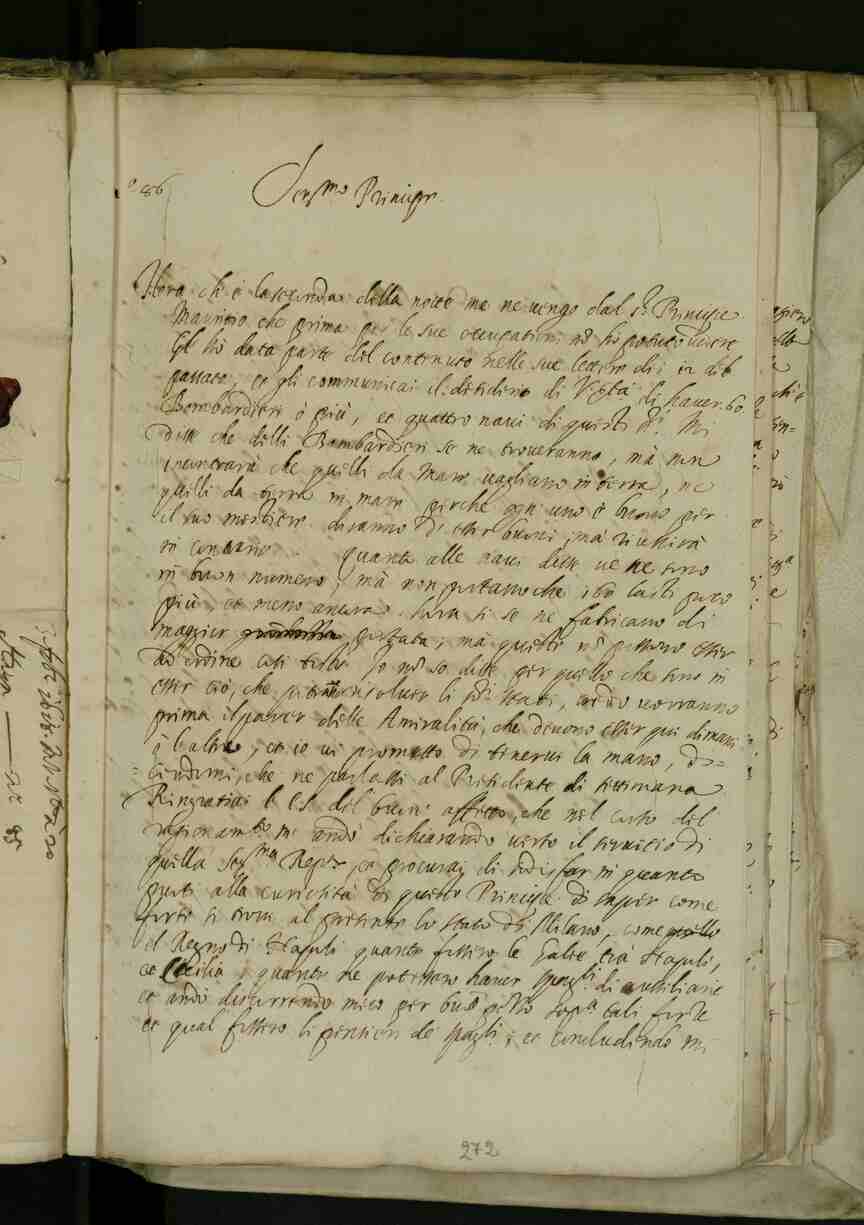 n.º 86
Ser.mo Principe
Hora ch'è la seconda della notte me ne vengo dal s.r Principe
Mauritio che prima per le sue occupationi nõ hò potuto vedere
Gl'hò data parte del contenuto nelle sue lettere di
passato, et gli communicai il desiderio di V. S.tà di haver 60
Bombardieri ò più, et quattro navi di questi Mi
disse che delli Bombardieri se ne troveranno, mà non
incontrarà che quelli da Mare vagliano in terra, ne
quelli da terra in mare perche ogn'uno è buono per
il suo mestiere diranno d'esser buoni; mà riuscirà
in contrario. quanto alle navi disse ve ne sono
in buon numero; mà non portano che 160 lasti poco
più, et meno ancora. hora si se ne fabricano di
maggior portata, ma queste nõ possono esser
ad ordine così tosto. Io nõ so disse per quello che sono in
esser ciò, che potranno risolver li s.ri Stati, credo vorranno
prima il parer delle Amiralità, che devono esser qui dimani
ò l'altro, et io vi prometto di tenervi la mano, di-
cendomi, che ne parlassi al Presidente di settimana
Ringratiai l'E. S. del buon affetto, che nel corso del
ragionam.to mi andò dichiarando verso il servitio di
quella Ser.ma Rep.ca, et procurai di sodisfar in quanto
puoti alla curiosità di questo Principe di saper come
forte si trovi al presente lo stato di Milano, come
il Regno di Napoli quante fossero le Galee trà Napoli,
et Cicilia, quante ne potessero haver Spag.li di ausiliarie
et andò discorrendo meco per buõ pezzo sop.a tali forze
et qual fossero li pensieri de Spag.li; et concludendo mi
272